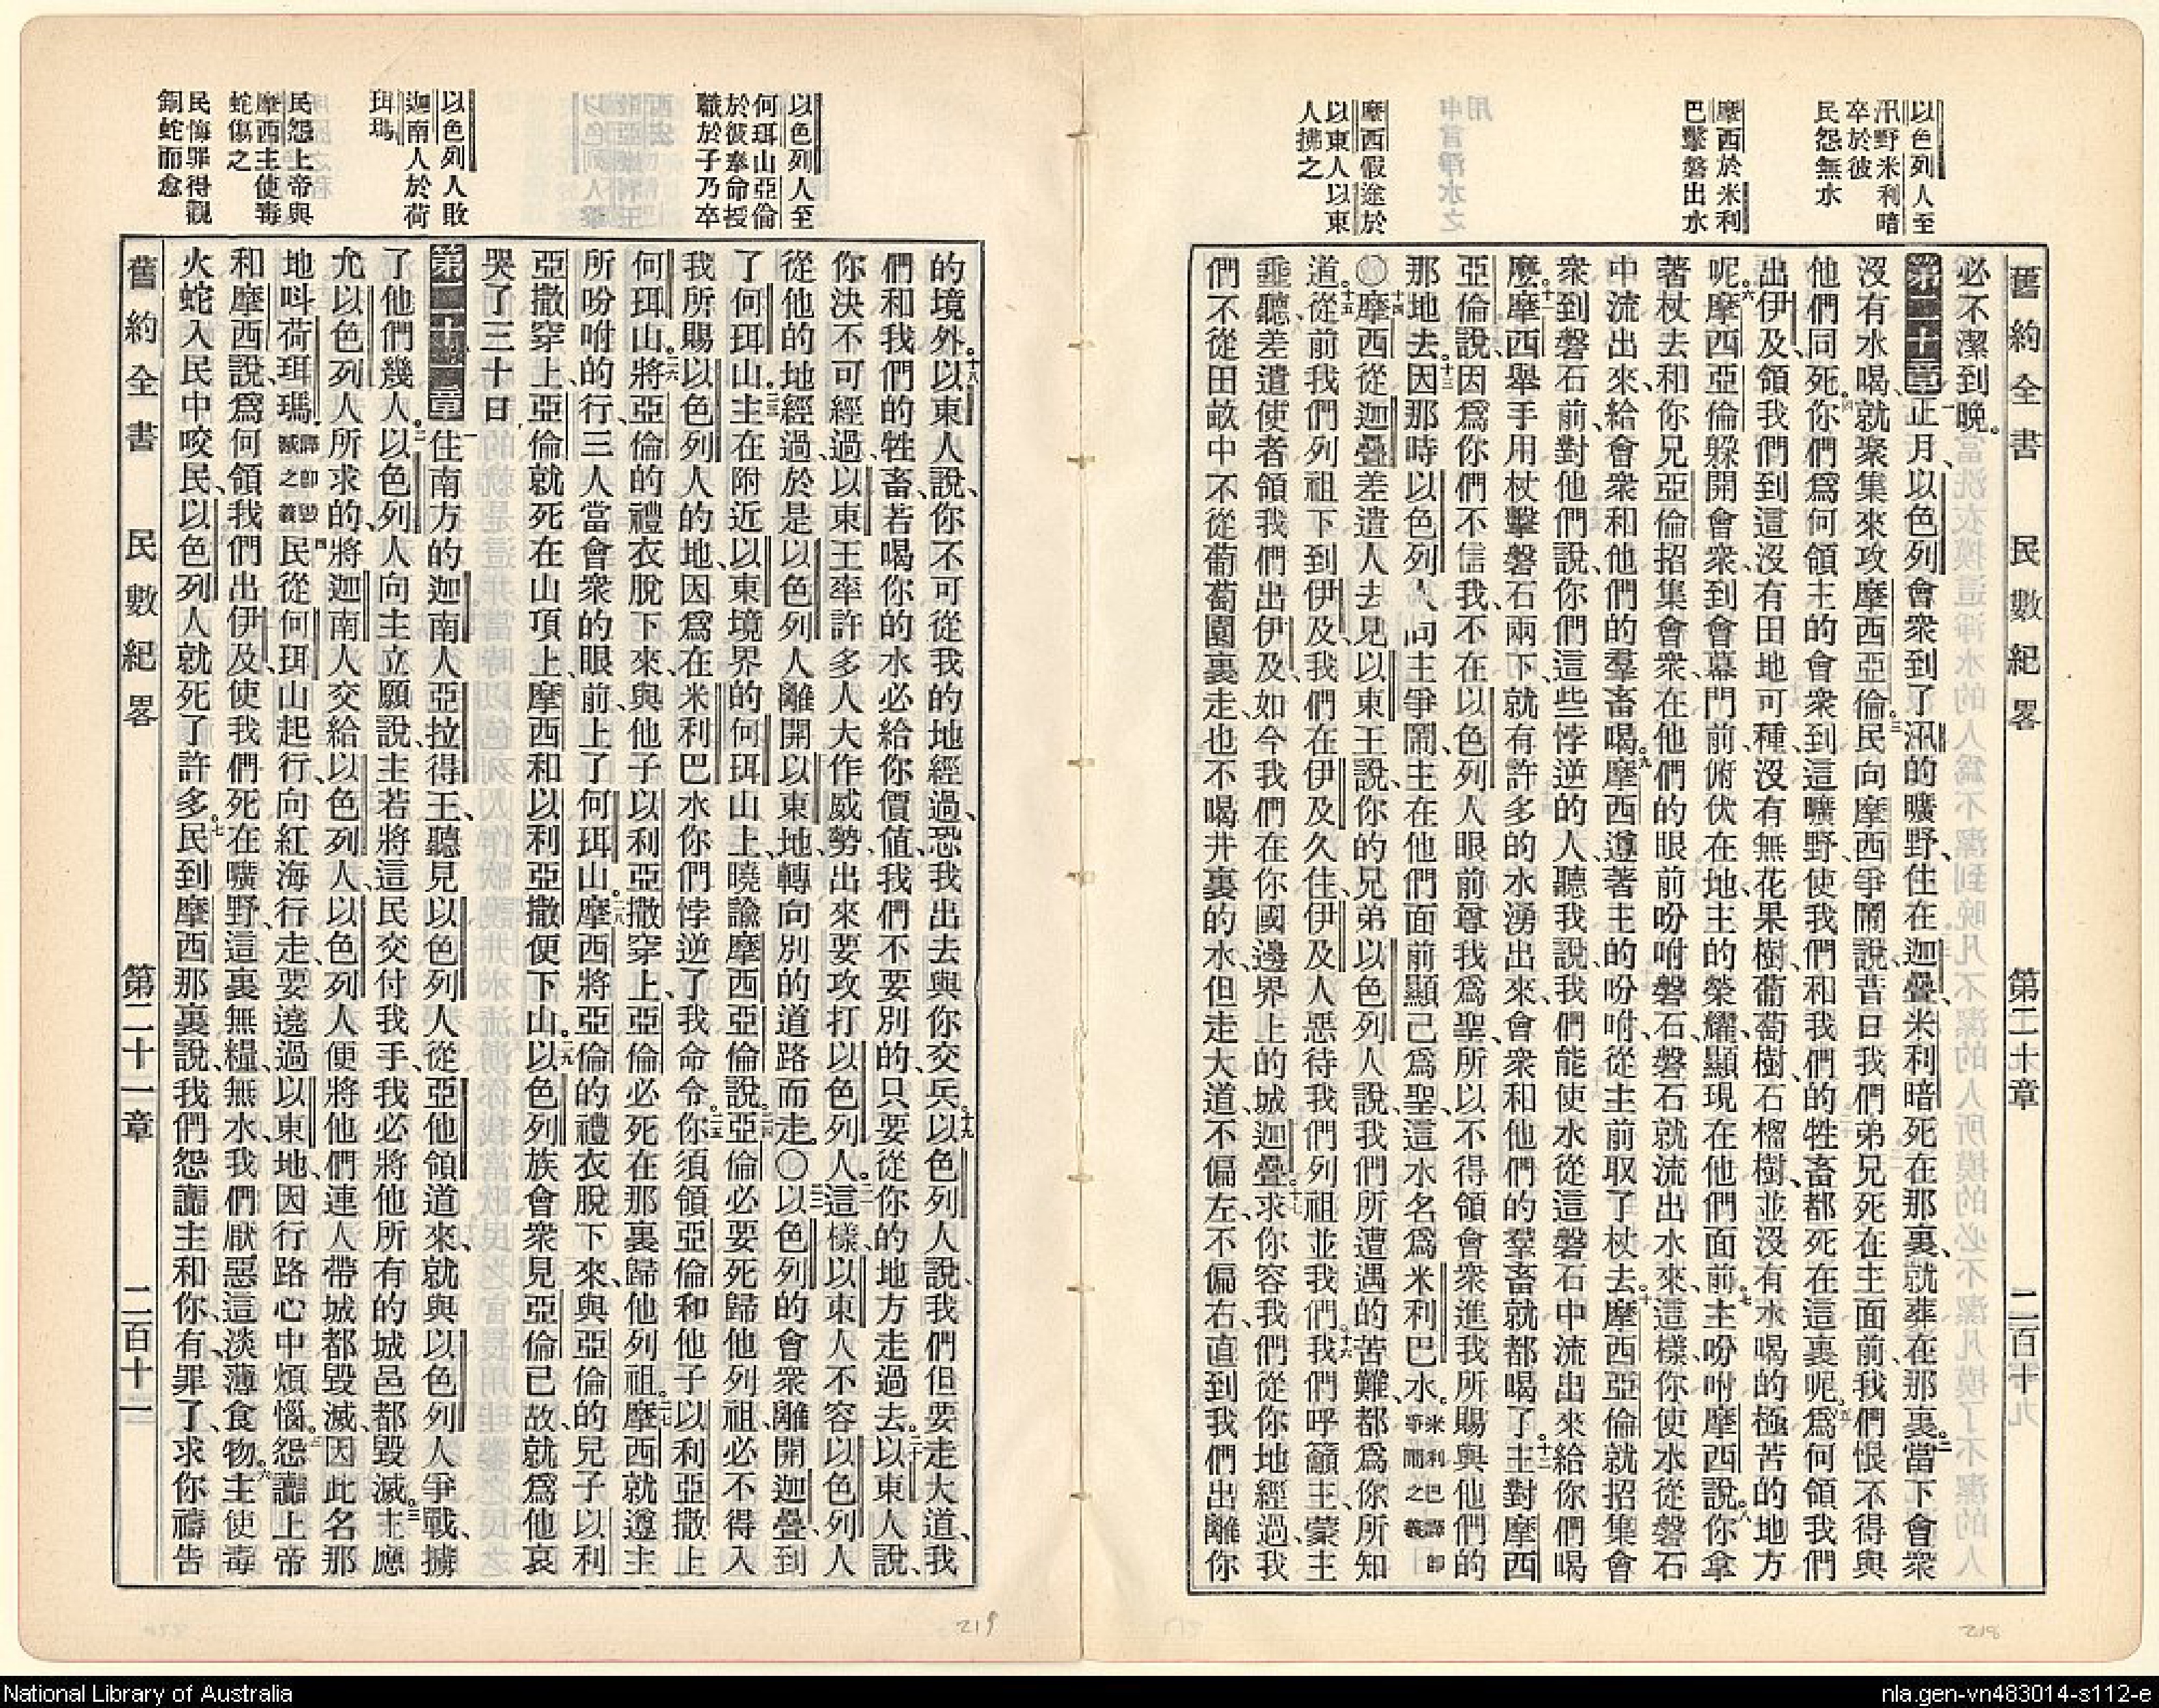 以色列人至
汛野米利暗
卒於彼
民怨無水
摩西於米利
巴擊磐出水
摩西假途於
以東人以東
人拂之
舊約全書 民數紀畧 第二十章 二百十
必不潔到晚。
第二十章正月、以色列會衆到了汛的曠野、住在迦疊、米利暗死在那裏、就葬在那裏。二當下會衆
沒有水喝、就聚集來攻摩西亞倫。三民向摩西爭鬧說、昔日我們弟兄死在主面前、我們恨不得與
他們同死。四你們爲何領主的會衆到這曠野、使我們和我們的牲畜都死在這裏呢。五爲何領我們
出伊及、領我們到這沒有田地可種、沒有無花果樹、葡萄樹、石榴樹、並沒有水喝的極苦的地方
呢。六摩西亞倫躱開會衆、到會幕門前、俯伏在地、主的榮耀顯現在他們面前。七主吩咐摩西說、八你拿
著杖去、和你兄亞倫招集會衆、在他們的眼前吩咐磐石、磐石就流出水來、這樣你使水從磐石
中流出來、給會衆和他們的羣畜喝。九摩西遵著主的吩咐、從主前取了杖去。十摩西亞倫就招集會
衆到磐石前、對他們說、你們這些悖逆的人、聽我說、我們能使水從這磐石中流出來給你們喝
麼。十一摩西舉手用杖擊磐石兩下、就有許多的水湧出來、會衆和他們的羣畜就都喝了。十二主對摩西
亞倫說、因爲你們不信我、不在以色列人眼前尊我爲聖、所以不得領會衆進我所賜與他們的
那地去。十三因那時以色列人向主爭鬧、主在他們面前顯己爲聖、這水名爲米利巴水。米利巴譯卽爭鬧之義
〇十四摩西從迦疊差遣人去見以東王說、你的兄弟以色列人說、我們所遭遇的苦難、都爲你所知
道。十五從前我們列祖下到伊及、我們在伊及久住、伊及人惡待我們列祖並我們。十六我們呼籲主、蒙主
垂聽、差遣使者領我們出伊及、如今我們在你國邊界上的城迦疊。十七求你容我們從你地經過、我
們不從田畝中、不從葡萄園裏走、也不喝井裏的水、但走大道、不偏左、不偏右、直到我們出離你
218
以色列人至
何珥山亞倫
於彼奉命授
職於子乃卒
以色列人敗
迦南人於荷
珥瑪
民怨上帝與
摩西主使毒
蛇傷之
民悔罪得觀
銅蛇而愈
的境外。十八以東人說、你不可從我的地經過、恐我出去與你交兵。十九以色列人說、我們但要走大道、我
們和我們的牲畜、若喝你的水、必給你價值、我們不要別的、只要從你的地方走過去。二十以東人說、
你決不可經過、以東王率許多人大作威勢出來、要攻打以色列人。二一這樣、以東人不容以色列人
從他的地經過、於是以色列人離開以東地、轉向別的道路而走。〇二二以色列的會衆離開迦疊、到
了何珥山。二三主在附近以東境界的何珥山上、曉諭摩西亞倫說、二四亞倫必要死歸他列祖、必不得入
我所賜以色列人的地、因爲在米利巴水你們悖逆了我命令。二五你須領亞倫和他子以利亞撒上
何珥山。二六將亞倫的禮衣脫下來、與他子以利亞撒穿上、亞倫必死在那裏歸他列祖。二七摩西就遵主
所吩咐的行、三人當會衆的眼前上了何珥山。二八摩西將亞倫的禮衣脫下來、與亞倫的兒子以利
亞撒穿上、亞倫就死在山頂上、摩西和以利亞撒便下山。二九以色列族會衆見亞倫已故、就爲他哀
哭了三十日。
第二十一章一住南方的迦南人亞拉得王、聽見以色列人從亞他領道來、就與以色列人爭戰、擄
了他們幾人。二以色列人向主立願說、主若將這民交付我手、我必將他所有的城邑都毀滅。三主應
允以色列人所求的、將迦南人交給以色列人、以色列人便將他們連人帶城都毀滅、因此名那
地呌荷珥瑪。譯卽毀滅之義四民從何珥山起行、向紅海行走、要遶過以東地、因行路心中煩惱。五怨讟上帝
和摩西說、爲何領我們出伊及、使我們死在曠野、這裏無糧、無水、我們厭惡這淡薄食物。六主使毒
火蛇入民中咬民、以色列人就死了許多。七民到摩西那裏說、我們怨讟主和你、有罪了、求你禱告
舊約全書 民數紀畧 第二十一章 二百十一
219
National Library of Australia
nla.gen-vn483014-s112-e